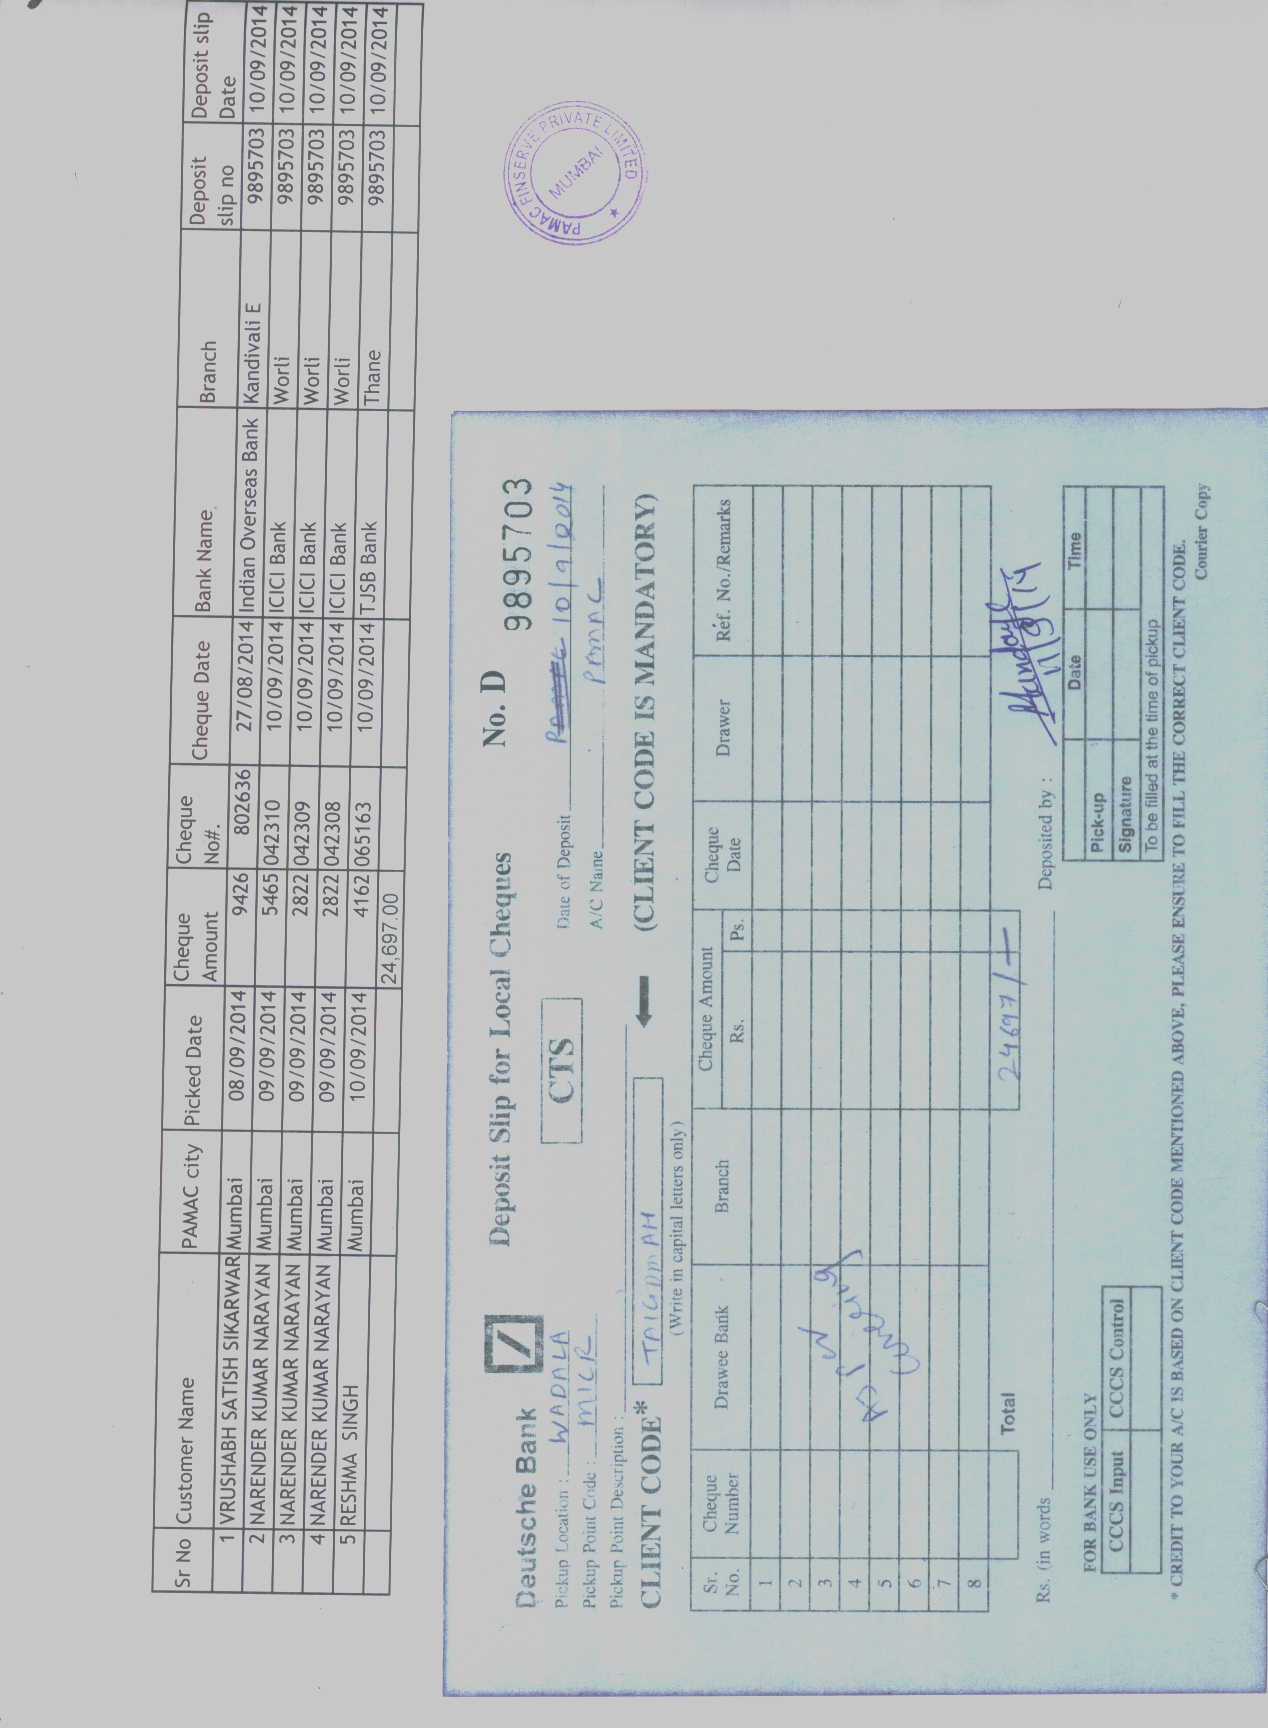 Sr No Customer Name PAMAC city Picked Date Cheque Amount Cheque No#. Cheque Date Bank Name Branch Deposit slip no Deposit slip Date
1 VRUSHABH SATISH SIKARWAR Mumbai 08/09/2014 9426 802636 27/08/2014 Indian Overseas Bank Kandivali E 9895703 10/09/2014
2 NARENDER KUMAR NARAYAN Mumbai 09/09/2014 5465 042310 10/09/2014 ICICI Bank Worli 9895703 10/09/2014
3 NARENDER KUMAR NARAYAN Mumbai 09/09/2014 2822 042309 10/09/2014 ICICI Bank Worli 9895703 10/09/2014
4 NARENDER KUMAR NARAYAN Mumbai 09/09/2014 2822 042308 10/09/2014 ICICI Bank Worli 9895703 10/09/2014
5 RESHMA SINGH Mumbai 10/09/2014 4162 065163 10/09/2014 TJSB Bank Thane 9895703 10/09/2014
24,697.00
PAMAC FINSERVE PRIVATE LIMITED
MUMBAI
Deutsche Bank
Deposit Slip for Local Cheques No. D 9895703
Pickup Location : WADALA
CTS
Date of Deposit 10/9/2014
Pickup Point Code : MICR
A/C Name PAMAC
Pickup Point Description :
CLIENT CODE* (CLIENT CODE IS MANDATORY)
(Write in capital letters only)
Sr. No. Cheque Number Drawee Bank Branch Cheque Amount Rs. Ps. Cheque Date Drawer Ref. No./Remarks
1
2
3
4
5
6
7
8
Total 24697/-
Rs. (in words
Deposited by :
11/9/14
FOR BANK USE ONLY
CCCS Input CCCS Control
Date Time
Pick-up
Signature
To be filled at the time of pickup
* CREDIT TO YOUR A/C IS BASED ON CLIENT CODE MENTIONED ABOVE, PLEASE ENSURE TO FILL THE CORRECT CLIENT CODE.
Courier Copy